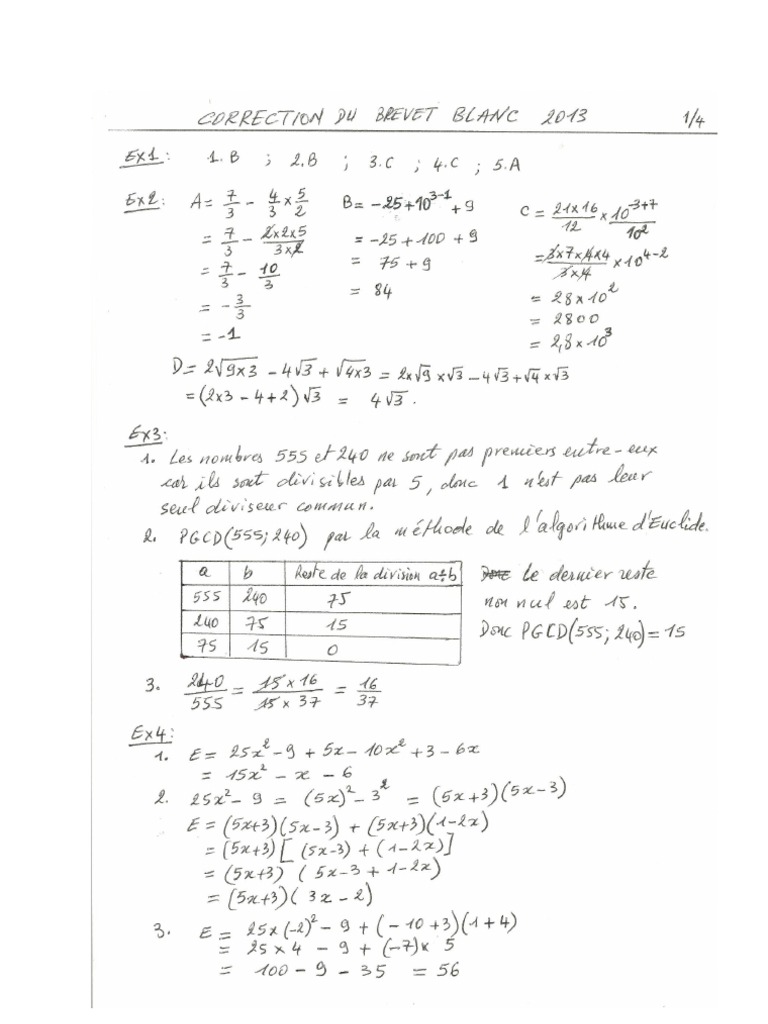 CORRECTION DU BREVET BLANC 2013 1/4
Ex1: 1.B ; 2.B ; 3.C ; 4.C ; 5.A
Ex2: A = 7/3 - 4/3 × 5/2
= 7/3 - 2×2×5/3×2
= 7/3 - 10/3
= - 3/3
= -1
B = -25 + 10^(3-1) + 9
= -25 + 100 + 9
= 75 + 9
= 84
C = 21×16/12 × 10^(-3+7)/10²
= 3×7×4×4/3×4 × 10^(4-2)
= 28 × 10²
= 2800
= 2,8 × 10³
D = 2√(9×3) - 4√3 + √(4×3) = 2×√9 × √3 - 4√3 + √4 × √3
= (2×3 - 4 + 2)√3 = 4√3.
Ex3:
1. Les nombres 555 et 240 ne sont pas premiers entre-eux
car ils sont divisibles par 5, donc 1 n'est pas leur
seul diviseur commun.
2. PGCD(555;240) par la méthode de l'algorithme d'Euclide.
a b Reste de la division a÷b
555 240 75
240 75 15
75 15 0
Le dernier reste
non nul est 15.
Donc PGCD(555;240) = 15
3. 240/555 = 15×16/15×37 = 16/37
Ex4:
1. E = 25x² - 9 + 5x - 10x² + 3 - 6x
= 15x² - x - 6
2. 25x² - 9 = (5x)² - 3² = (5x+3)(5x-3)
E = (5x+3)(5x-3) + (5x+3)(1-2x)
= (5x+3)[(5x-3) + (1-2x)]
= (5x+3)(5x-3+1-2x)
= (5x+3)(3x-2)
3. E = 25×(-2)² - 9 + (-10+3)(1+4)
= 25 × 4 - 9 + (-7)× 5
= 100 - 9 - 35 = 56